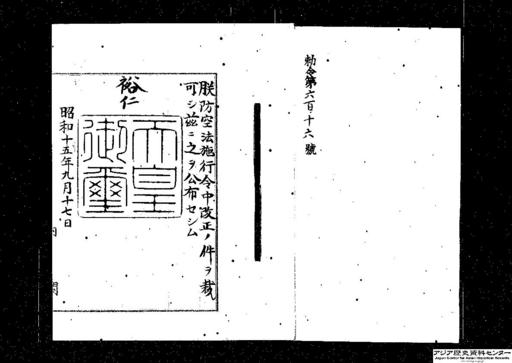 勅令第六百十六號
朕防空法施行令中改正ノ件ヲ裁
可シ茲ニ之ヲ公布セシム
裕仁
天皇
御璽
昭和十五年九月十七日
内
閣
アジア歴史資料センター
Japan Center for Asian Historical Records